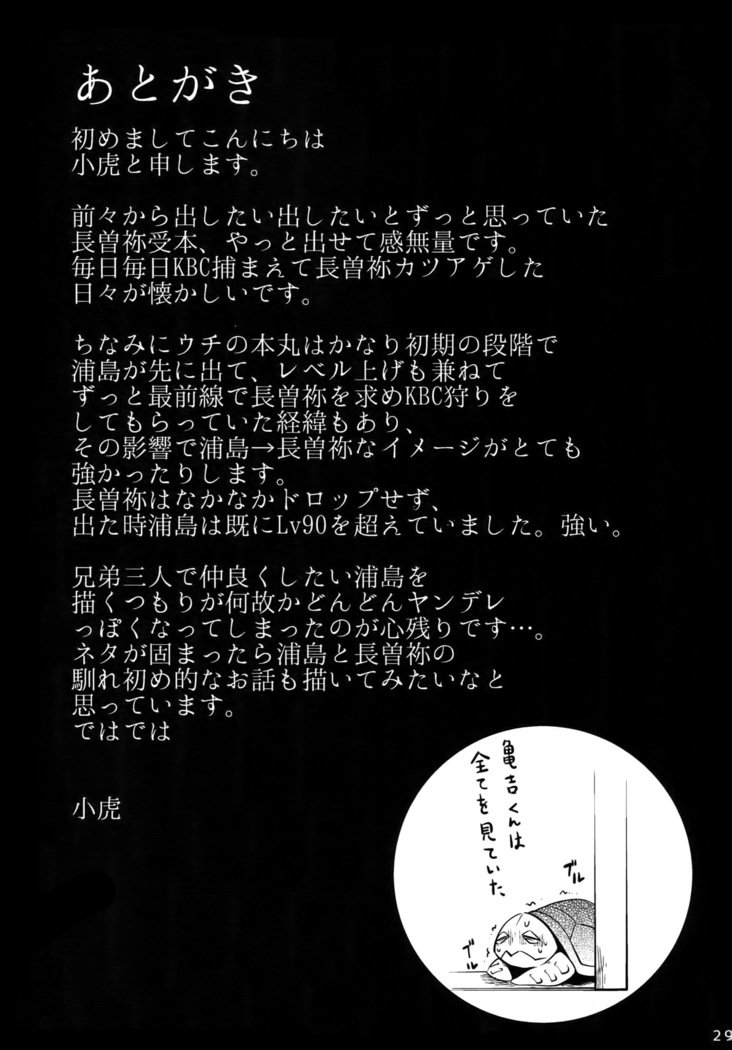 あとがき
初めましてこんにちは
小虎と申します。
前々から出したい出したいとずっと思っていた
長曽祢受本、やっと出せて感無量です。
毎日毎日KBC捕まえて長曽祢カツアゲした
日々が懐かしいです。
ちなみにウチの本丸はかなり初期の段階で
浦島が先に出て、レベル上げも兼ねて
ずっと最前線で長曽祢を求めKBC狩りを
してもらっていた経緯もあり、
その影響で浦島→長曽祢なイメージがとても
強かったりします。
長曽祢はなかなかドロップせず、
出た時浦島は既にLv90を超えていました。強い。
兄弟三人で仲良くしたい浦島を
描くつもりが何故かどんどんヤンデレ
っぽくなってしまったのが心残りです…。
ネタが固まったら浦島と長曽祢の
馴れ初め的なお話も描いてみたいなと
思っています。
ではでは
小虎
亀吉くんは
全てを見ていた、
ブル
ブル
29